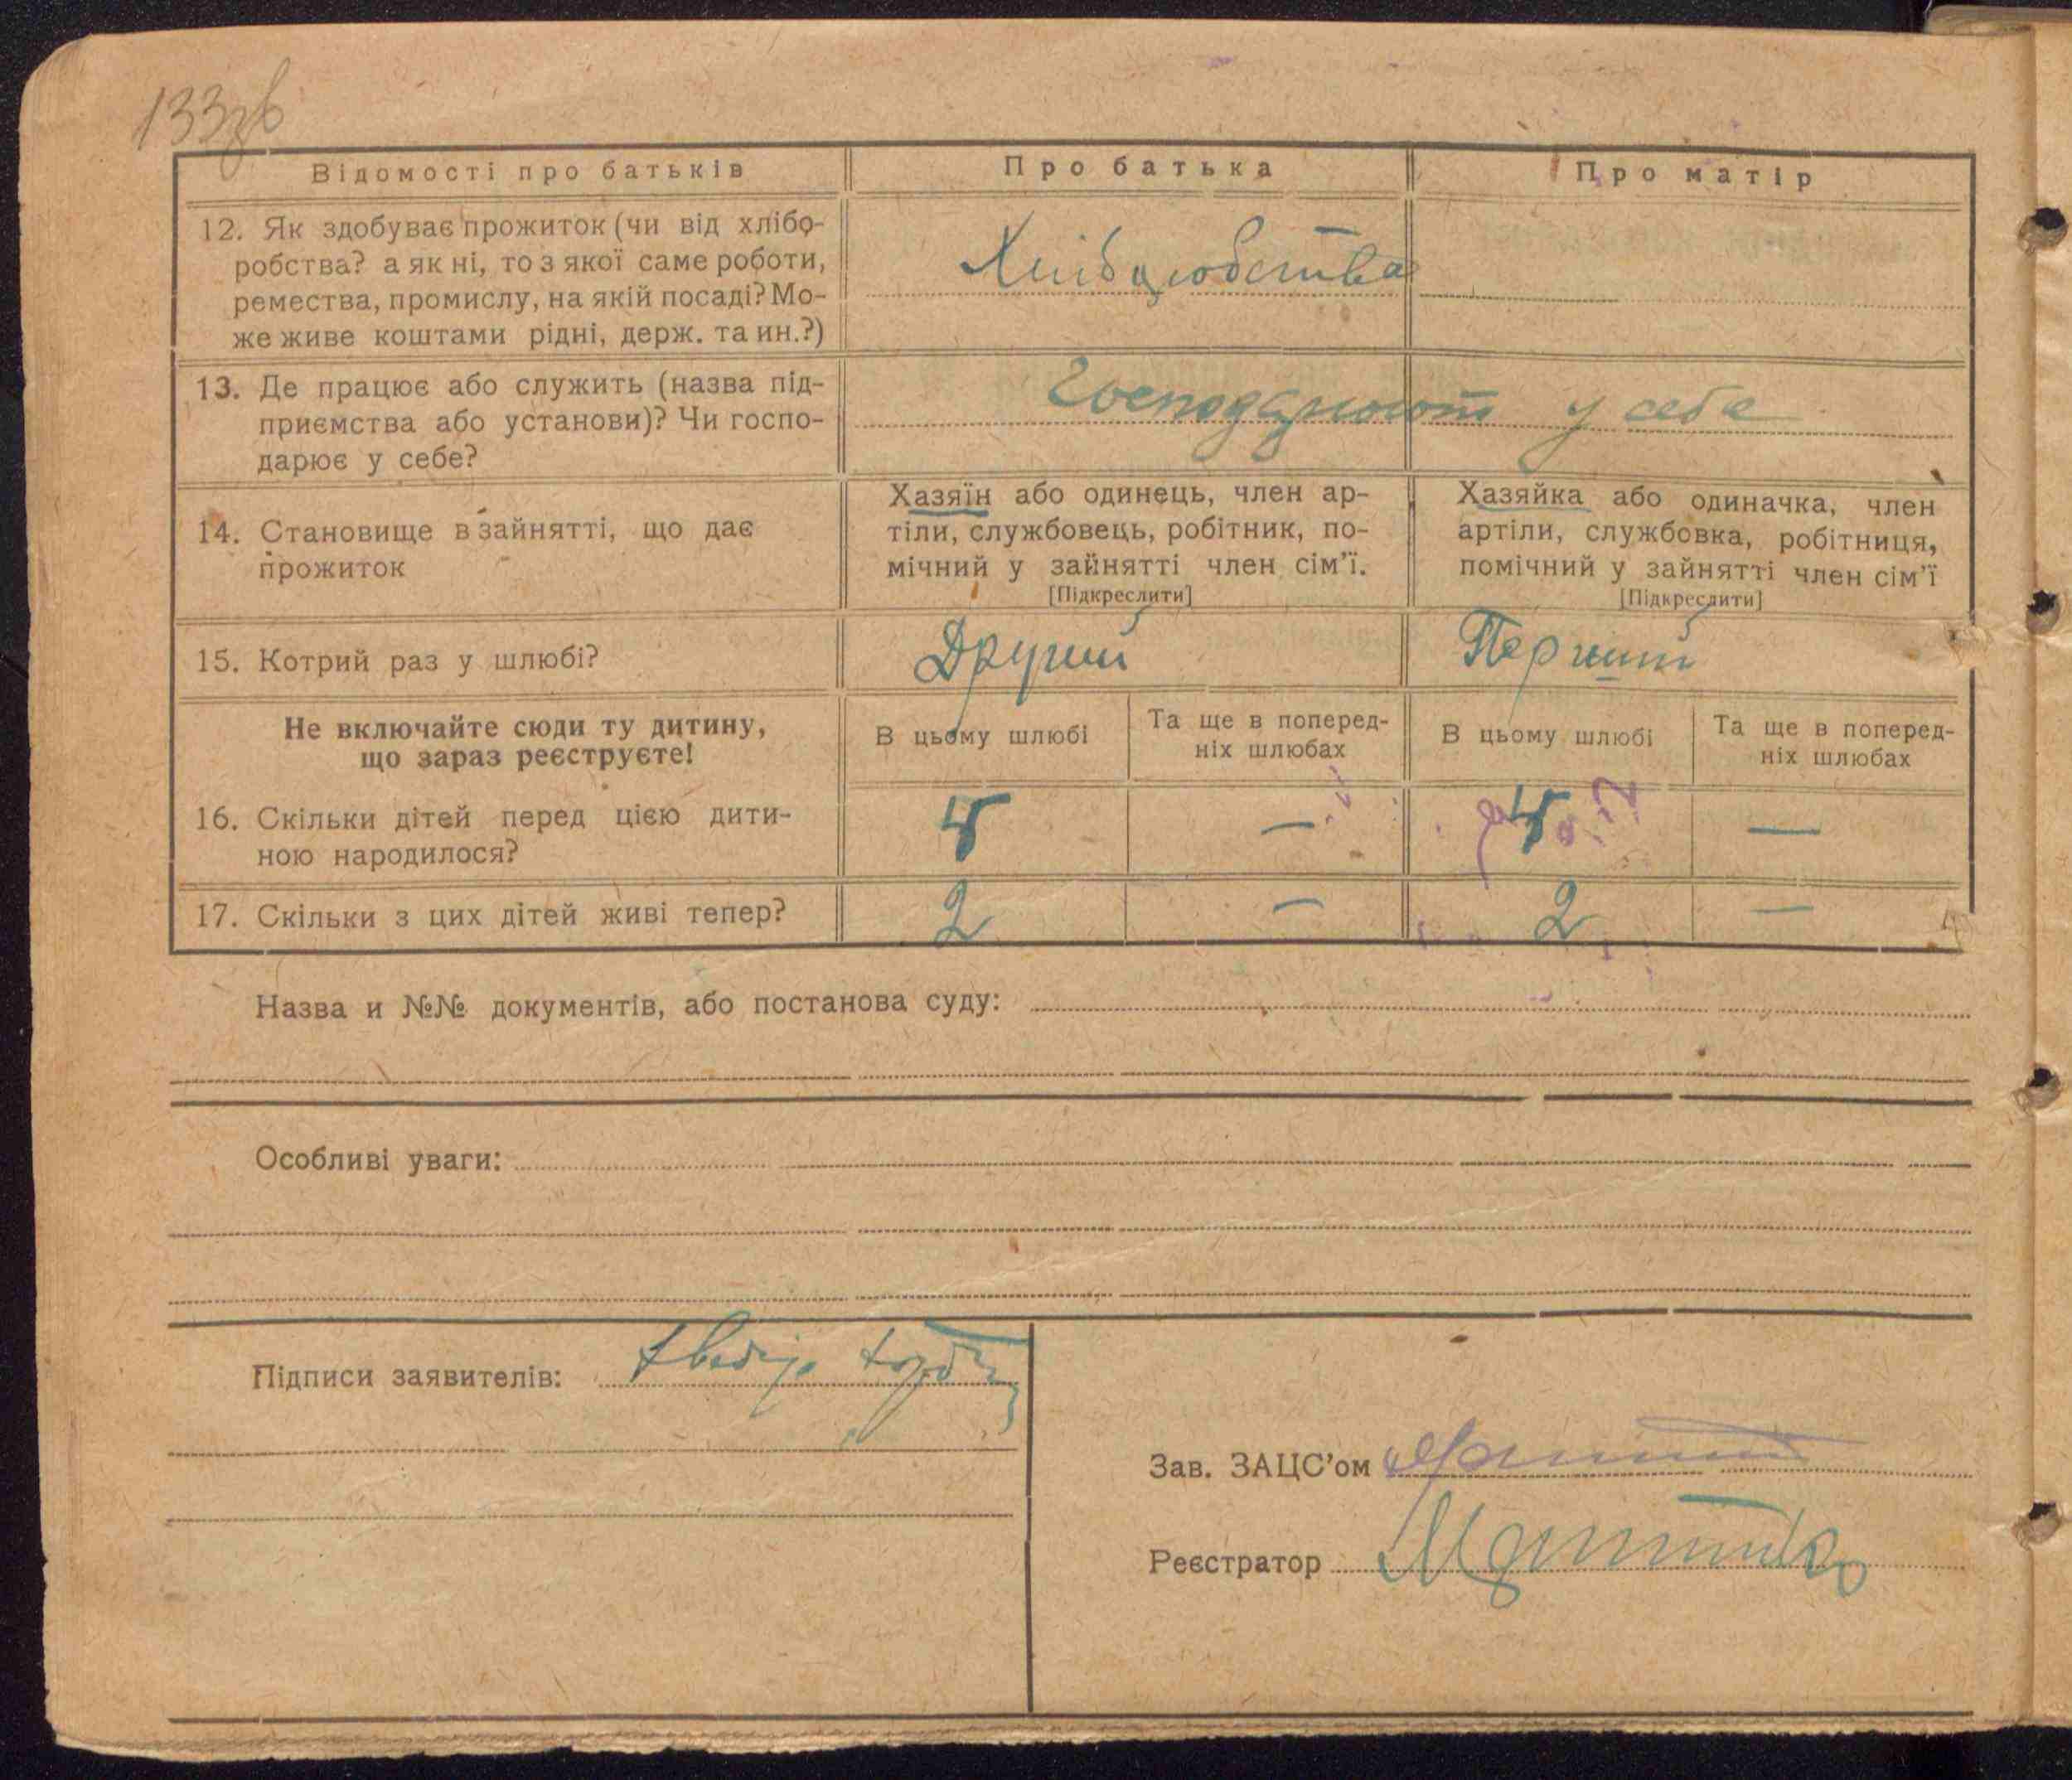 133зв
Відомості про батьків
Про батька
Про матір
12. Як здобуває прожиток (чи від хлібо-
робства? а як ні, то з якої саме роботи,
ремества, промислу, на якій посаді? Мо-
же живе коштами рідні, держ. та ин.?)
13. Де працює або служить (назва під-
приємства або установи)? Чи госпо-
дарює у себе?
у себе
14. Становище в зайнятті, що дає
прожиток
Хазяїн або одинець, член ар-
тіли, службовець, робітник, по-
мічний у зайнятті член сім'ї.
[Підкреслити]
Хазяйка або одиначка, член
артіли, службовка, робітниця,
помічний у зайнятті член сім'ї
[Підкреслити]
15. Котрий раз у шлюбі?
Другий
Перший
Не включайте сюди ту дитину,
що зараз реєструєте!
В цьому шлюбі
Та ще в поперед-
ніх шлюбах
В цьому шлюбі
Та ще в поперед-
ніх шлюбах
16. Скільки дітей перед цією дити-
ною народилося?
— —
17. Скільки з цих дітей живі тепер?
2 — 2 —
Назва и №№ документів, або постанова суду:
Особливі уваги:
Підписи заявителів:
Зав. ЗАЦС'ом
Реєстратор